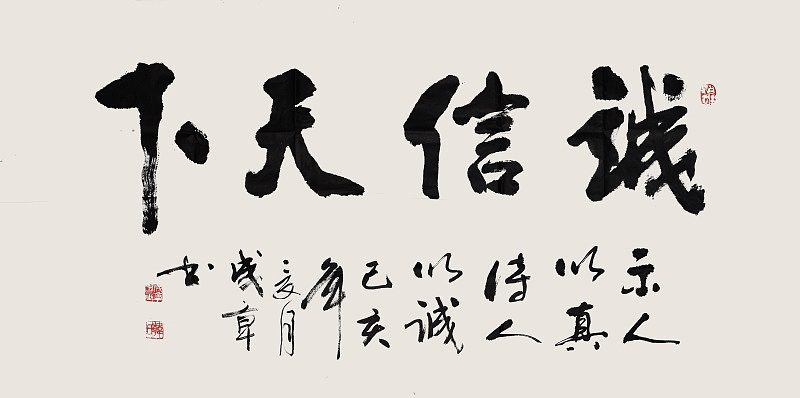 誠信天下
示人
以真
待人
以诚
己亥
年
夏月
成章
书